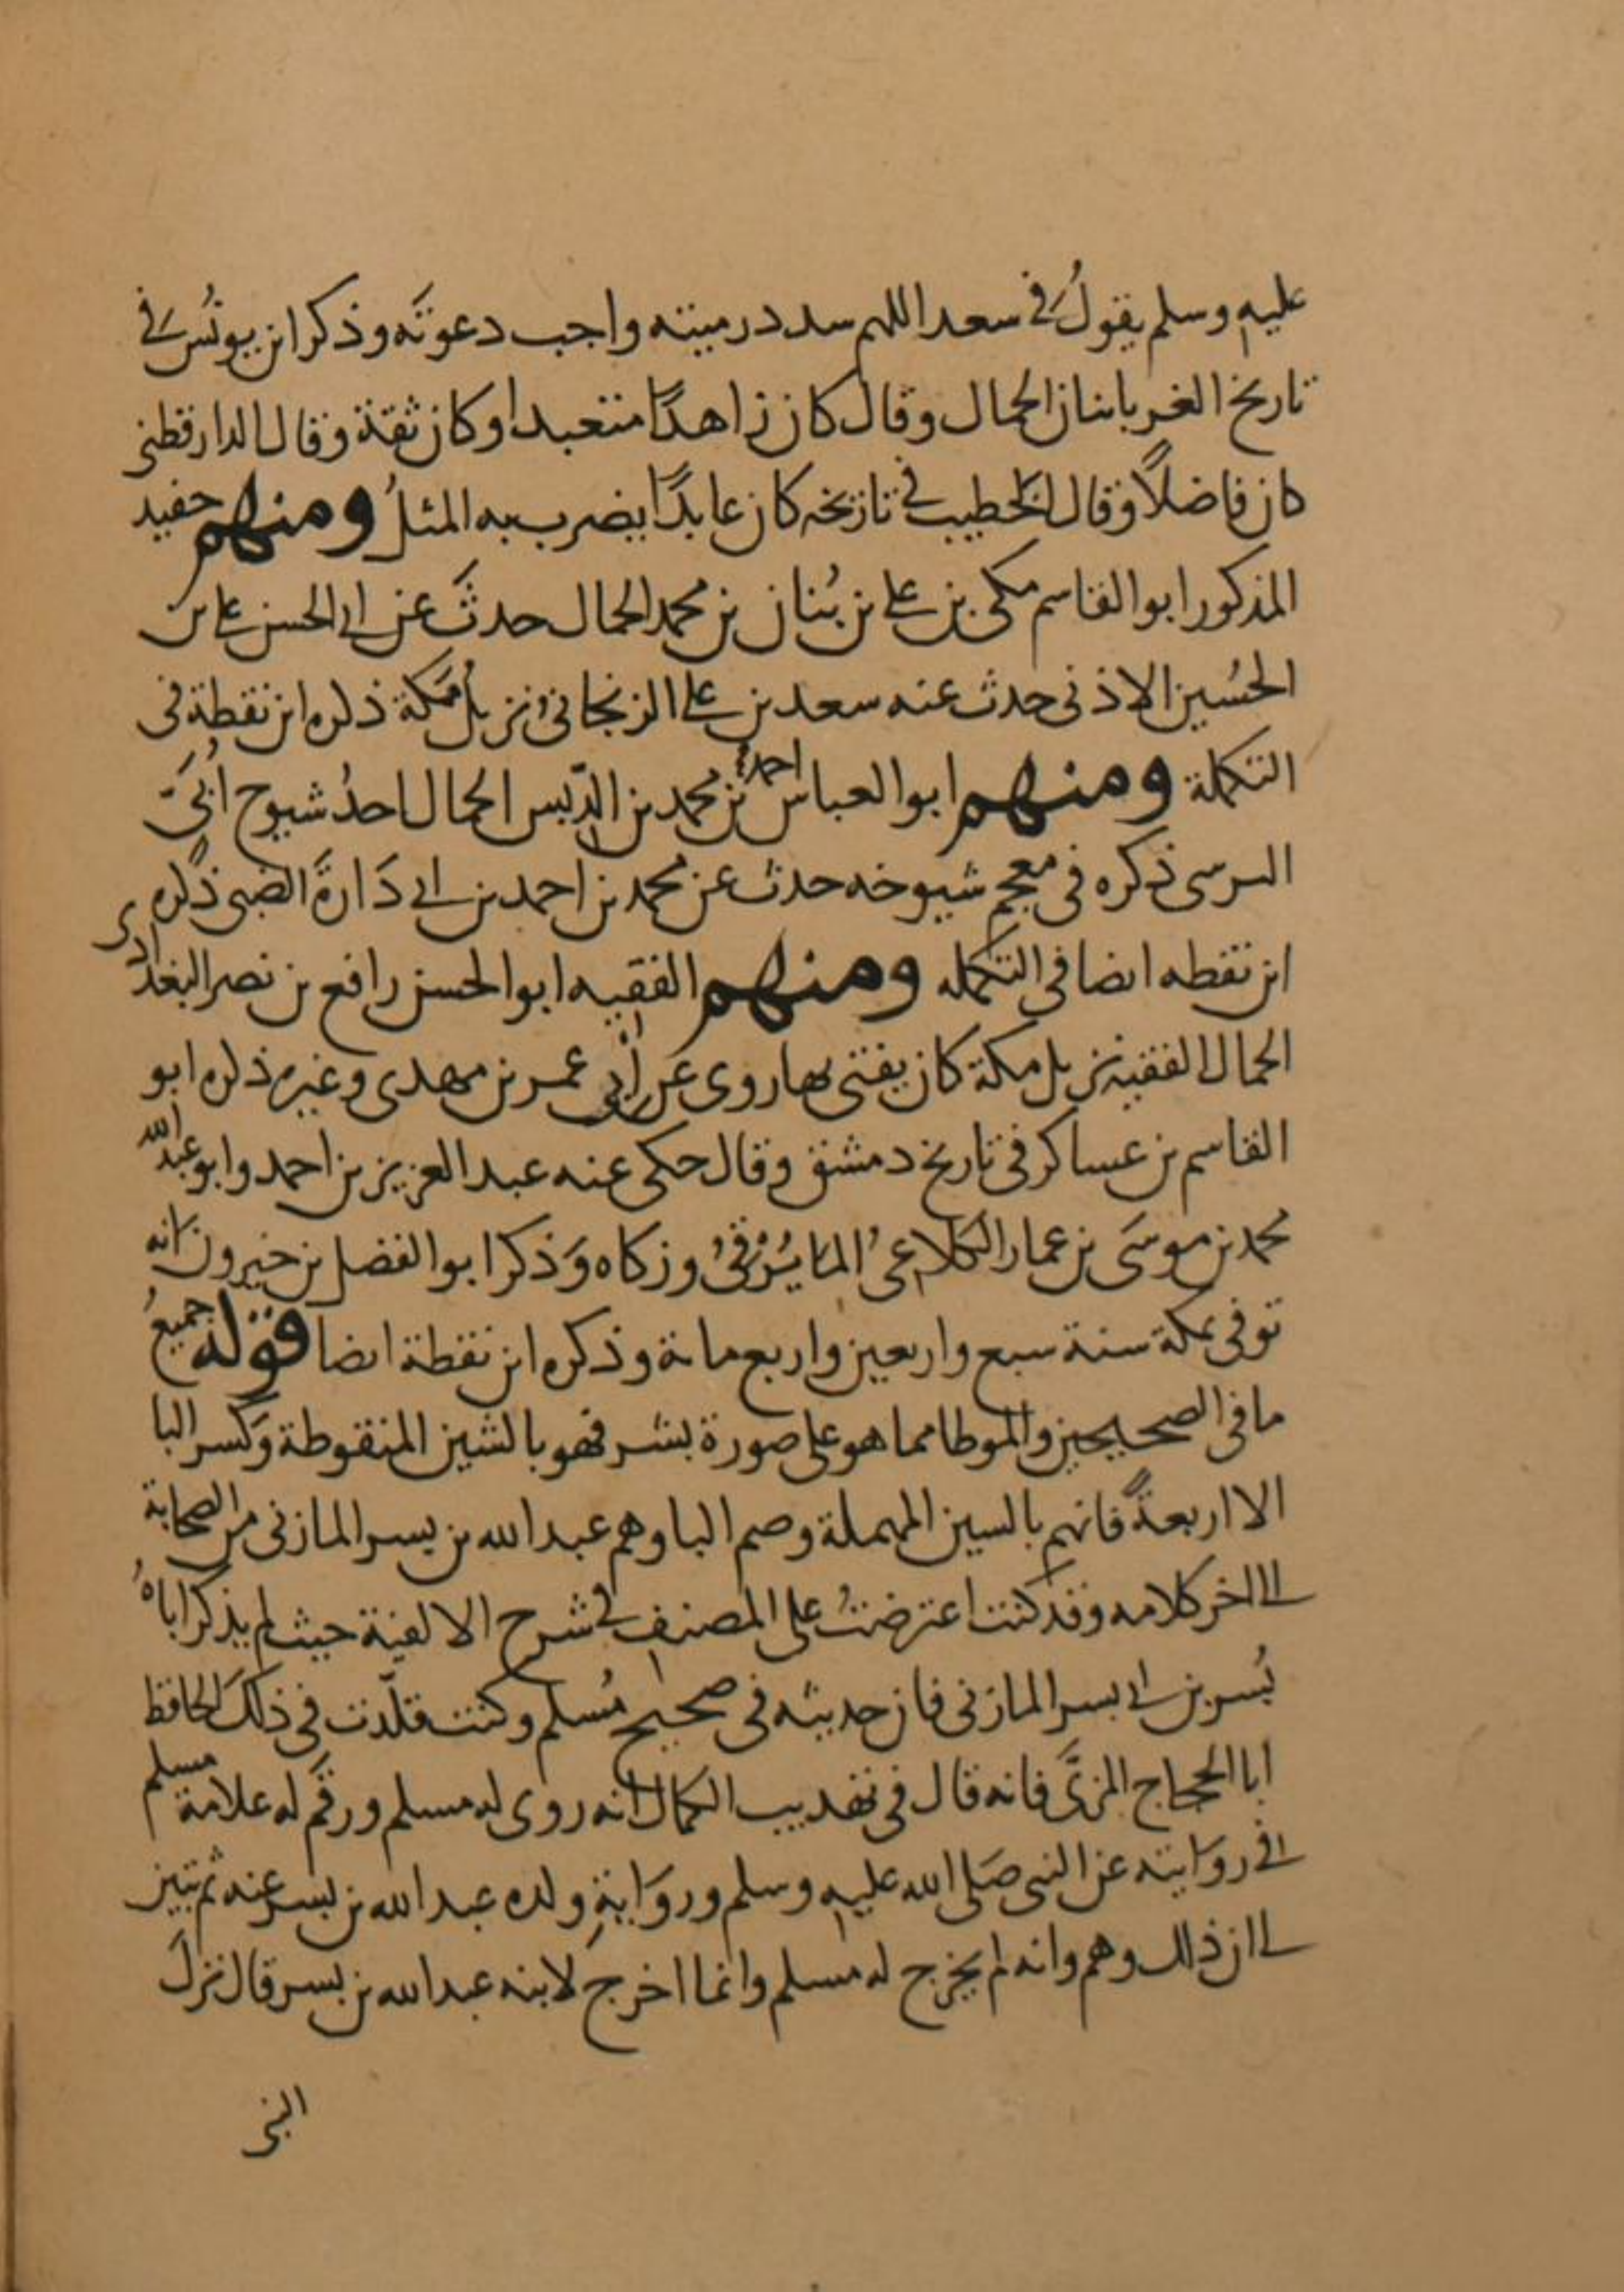 عليه وسلم يقولُ في سعد اللهم سدد رميته واجب دعوتَه وذكر ابن يونُس في
تاريخ الغربا بنان الحمال وقال كان زاهدًا متعبدا وكان ثقة وقال الدارقطني
كان فاضلًا وقال الخطيب في تاريخه كان عابدًا يضرب به المثلُ ومنهم حفيد
المذكور ابو القاسم مكى بن على بن بُنان بن محمد الحمال حدثَ عن ابى الحسن على بن
الحُسين الاذنى حدث عنه سعد بن على الزنجانى نزيلُ مَكة ذكره ابن نقطة فى
التكملة ومنهم ابو العباس احمدُ بن محمد بن الدّبس الحمال احدُ شيوخ اُبَىّ
النرسى ذكره فى معجم شيوخه حدث عن محمد بن احمد بن ابى دَارَة الضبى ذكره
ابن نقطه ايضا فى التكمله ومنهم الفقيه ابو الحسن رافع بن نصر البغدادى
الحمال الفقيه نزيل مكة كان يفتى بها روى عن أبي عمر بن مهدى وغيره ذكره ابو
القاسم بن عساكر فى تاريخ دمشق وقال حكى عنه عبد العزيز بن احمد وابو عبد الله
محمد بن موسَى بن عمار الكلاعىُ المايُرْقىُ وزكاه وَذكر ابو الفضل بن خيرون انه
توفى بمكة سنة سبع واربعين واربع مائة وذكره ابن نقطة ايضا قوله جميعُ
ما فى الصحيحين والموطا مما هو على صورة بشر فهو بالشين المنقوطة وَكسر البا
الا اربعةً فانهم بالسين المهملة وضم البا وهم عبد الله بن بسر المازنى من الصحابة
الى اخر كلامه وقد كنت اعترضتُ على المصنف فى شرح الالفية حيث لم يذكر اباهُ
بُسر بن ابى بسر المازنى فان حديثه فى صحيح مُسلم وكنت قلّدت فى ذلكَ الحافظ
ابا الحجاج المزىَّ فانه قال فى تهذيب الكمال انه روى له مسلم ورقَم له علامة مسلم
فى روَايته عن النبى صَلى الله عليه وسلم وروَايةِ ولده عبد الله بن بسر عنه ثم تبين
لى ان ذلك وهم وانه لم يخرج له مسلم وانما اخرج لابنه عبد الله بن بسر قال نزلَ
النبى